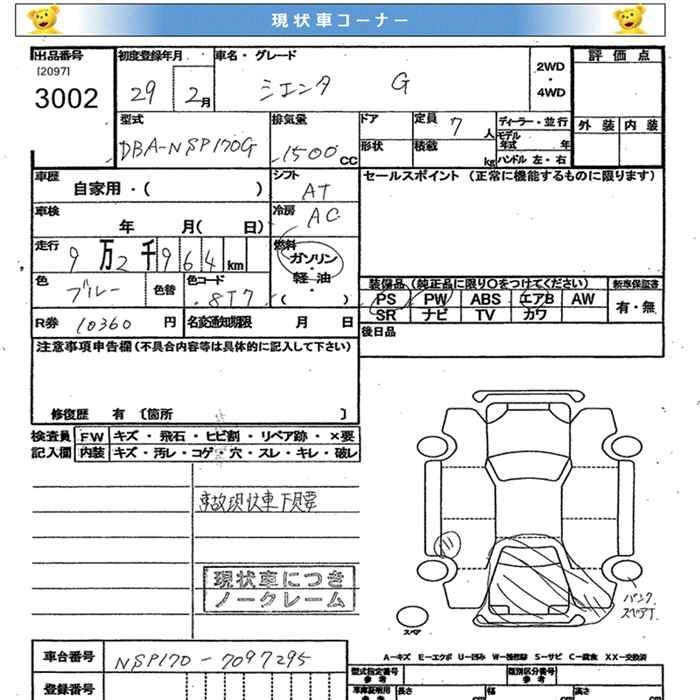 現状車コーナー
出品番号
[2097]
3002
初度登録年月
29 2月
車名・グレード
シエンタ G
2WD
・
4WD
評価点
外装 内装
型式
DBA-NSP170G
排気量
1500 CC
ドア
形状
定員 7 人
積載 kg
ディーラー・並行
モデル年式 年
ハンドル 左・右
車歴
自家用・( )
シフト
AT
セールスポイント (正常に機能するものに限ります)
車検
年 月( 日)
冷房
AC
走行
9万2千964 km
燃料
ガソリン
・
軽油
・
( )
色
ブルー
色替
色コード
8T7
装備品 (純正品に限り○をつけてください)
新車保証書
PS PW ABS エアB AW
SR ナビ TV カワ
有・無
R券 10360 円
名変通知期限 月 日
後日品
注意事項申告欄(不具合内容等は具体的に記入して下さい)
修復歴 有 [箇所 ]
検査員
記入欄
FW キズ・飛石・ヒビ割・リペア跡・×要
内装 キズ・汚レ・コゲ・穴・スレ・キレ・破レ
事故現状車下見要
現状車につき
ノークレーム
パンク
スペアT
スペア
A-キズ E-エクボ U-凹み W-補修跡 S-サビ C-腐食 XX-交換済
車台番号
NSP170-7097295
登録番号
型式指定番号
参考
類別区分番号
参考
車庫証明用
参考
長さ
幅
高さ